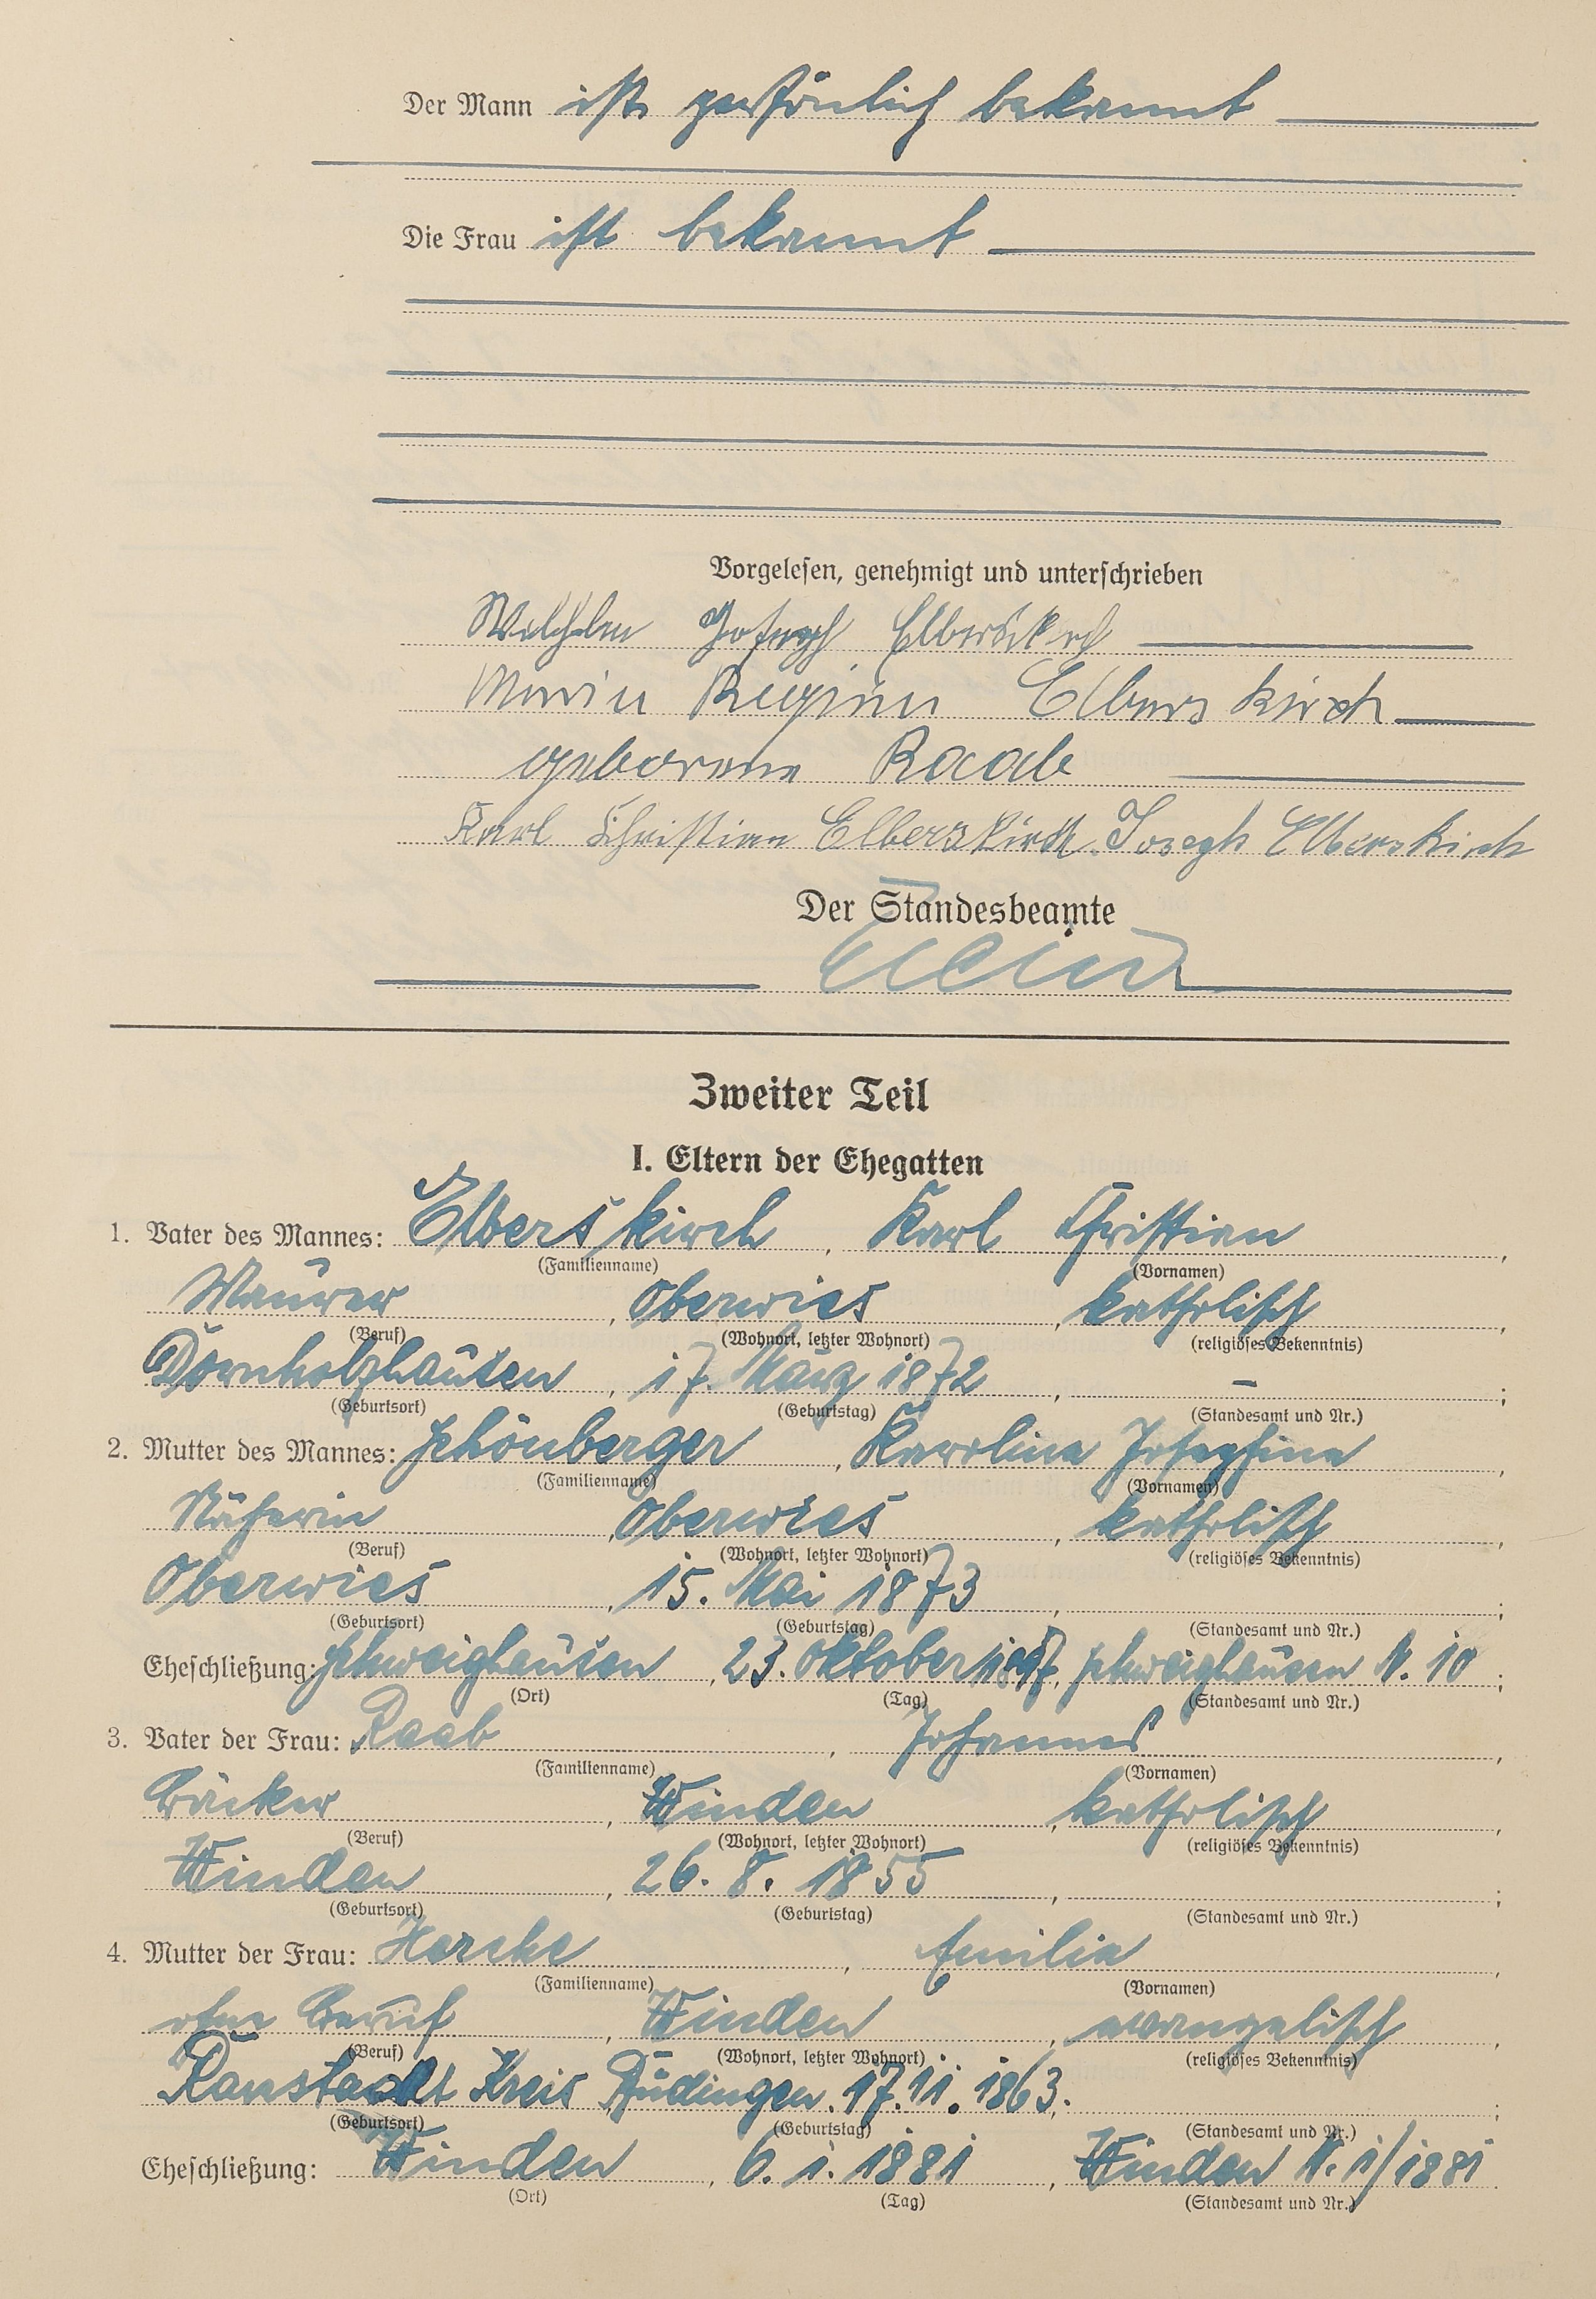 Der Mann ist persönlich bekannt
Die Frau ist bekannt
Vorgelesen, genehmigt und unterschrieben
Wilhelm Joseph Elberskirch
Maria Regina Elberskirch
geborene Raab
Karl Christian Elberskirch. Joseph Elberskirch
Der Standesbeamte
Zweiter Teil
I. Eltern der Ehegatten
1. Vater des Mannes: Elberskirch, Karl Christian,
(Familienname) (Vornamen)
Maurer, Oberwies, katholisch,
(Beruf) (Wohnort, letzter Wohnort) (religiöses Bekenntnis)
Dornholzhausen, 17. März 1872, —;
(Geburtsort) (Geburtstag) (Standesamt und Nr.)
2. Mutter des Mannes: Schönberger, Karolina Josephina,
(Familienname) (Vornamen)
Näherin, Oberwies, katholisch,
(Beruf) (Wohnort, letzter Wohnort) (religiöses Bekenntnis)
Oberwies, 15. Mai 1873, ;
(Geburtsort) (Geburtstag) (Standesamt und Nr.)
Eheschließung: Schweighausen, 23. Oktober 1897, Schweighausen N. 10;
(Ort) (Tag) (Standesamt und Nr.)
3. Vater der Frau: Raab, Johannes,
(Familienname) (Vornamen)
Bäcker, Winden, katholisch,
(Beruf) (Wohnort, letzter Wohnort) (religiöses Bekenntnis)
Winden, 26. 8. 1855, ;
(Geburtsort) (Geburtstag) (Standesamt und Nr.)
4. Mutter der Frau: Herche, Emilia,
(Familienname) (Vornamen)
ohne Beruf, Winden, evangelisch,
(Beruf) (Wohnort, letzter Wohnort) (religiöses Bekenntnis)
Ranstadt Kreis Büdingen. 17. 11. 1863. ;
(Geburtsort) (Geburtstag) (Standesamt und Nr.)
Eheschließung: Winden, 6. 1. 1881, Winden N. 1/1881.
(Ort) (Tag) (Standesamt und Nr.)